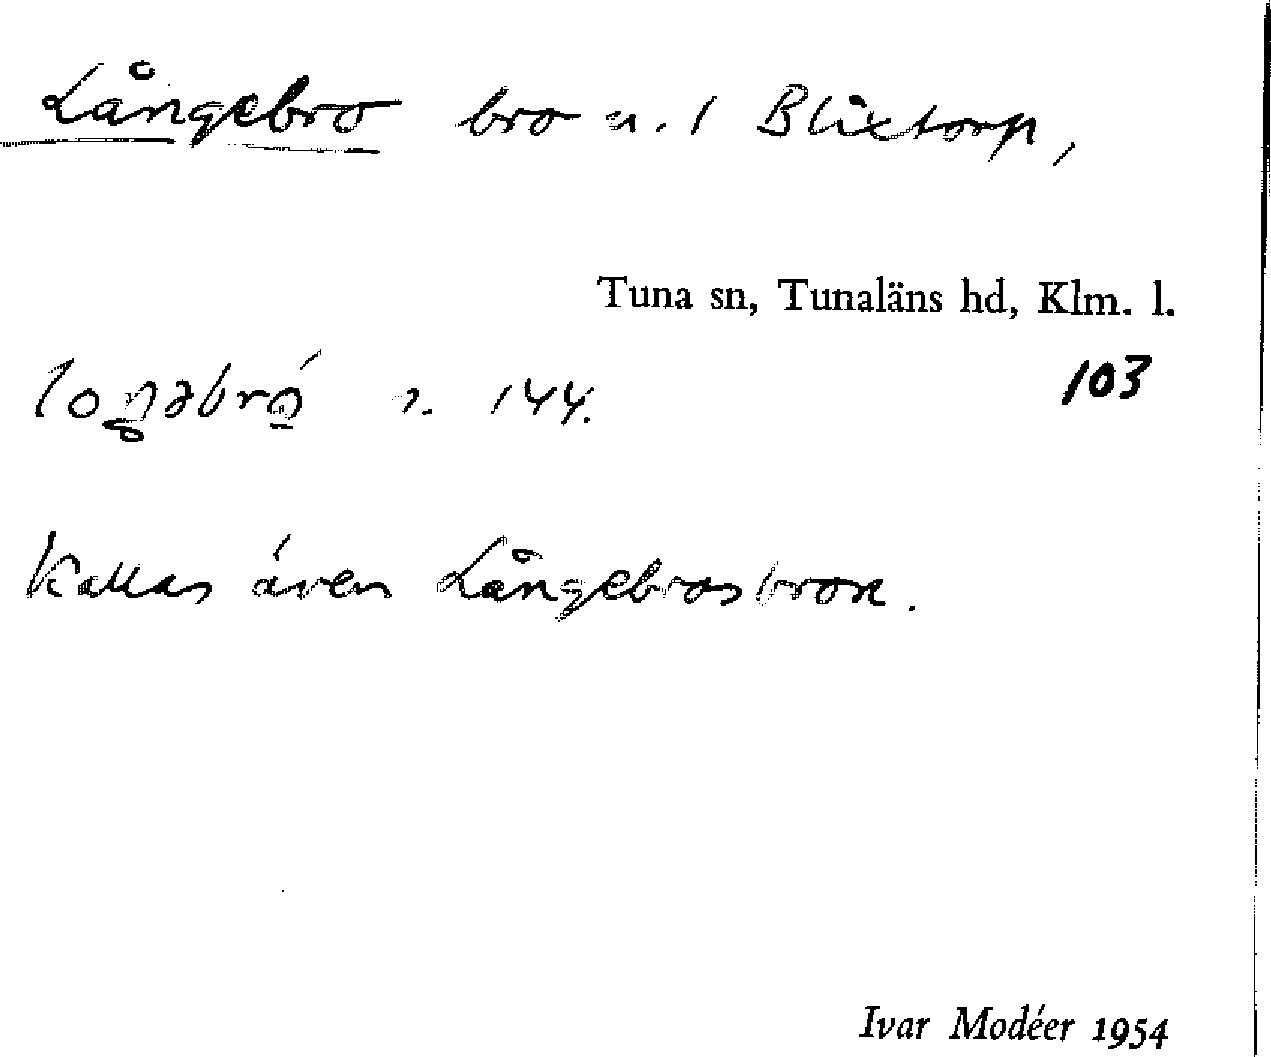 Långebro bro u. 1 Blixtorp,
Tuna sn, Tunaläns hd, Klm. l.
103
loŋəbró 2. 144.
Kallas även Långebrosbron.
Ivar Modéer 1954